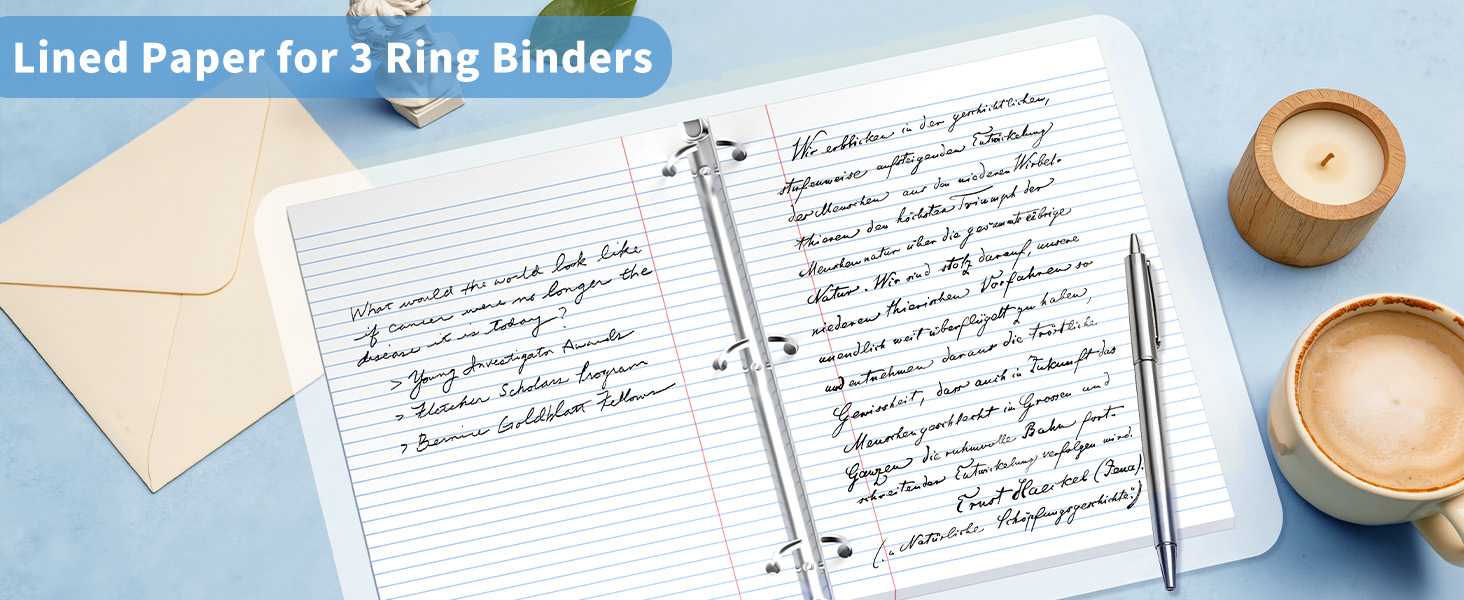 Lined Paper for 3 Ring Binders
What would the world look like
if cancer were no longer the
disease it is today?
> Young Investigator Awards
> Fletcher Scholars Program
> Bernice Goldblatt Fellows
Wir erblicken in der geschichtlichen,
stufenweise aufsteigenden Entwickelung
der Menschen aus den niederen Wirbel-
thieren den höchsten Triumph der
Menschennatur über die gesammte übrige
Natur. Wir sind stolz darauf, unsere
niederen thierischen Vorfahren so
unendlich weit überflügelt zu haben,
und entnehmen daraus die tröstliche
Gewissheit, dass auch in Zukunft das
Menschengeschlecht im Grossen und
Ganzen die ruhmvolle Bahn fort-
schreitender Entwickelung verfolgen wird.
Ernst Haeckel (Jena).
(„Natürliche Schöpfungsgeschichte“)